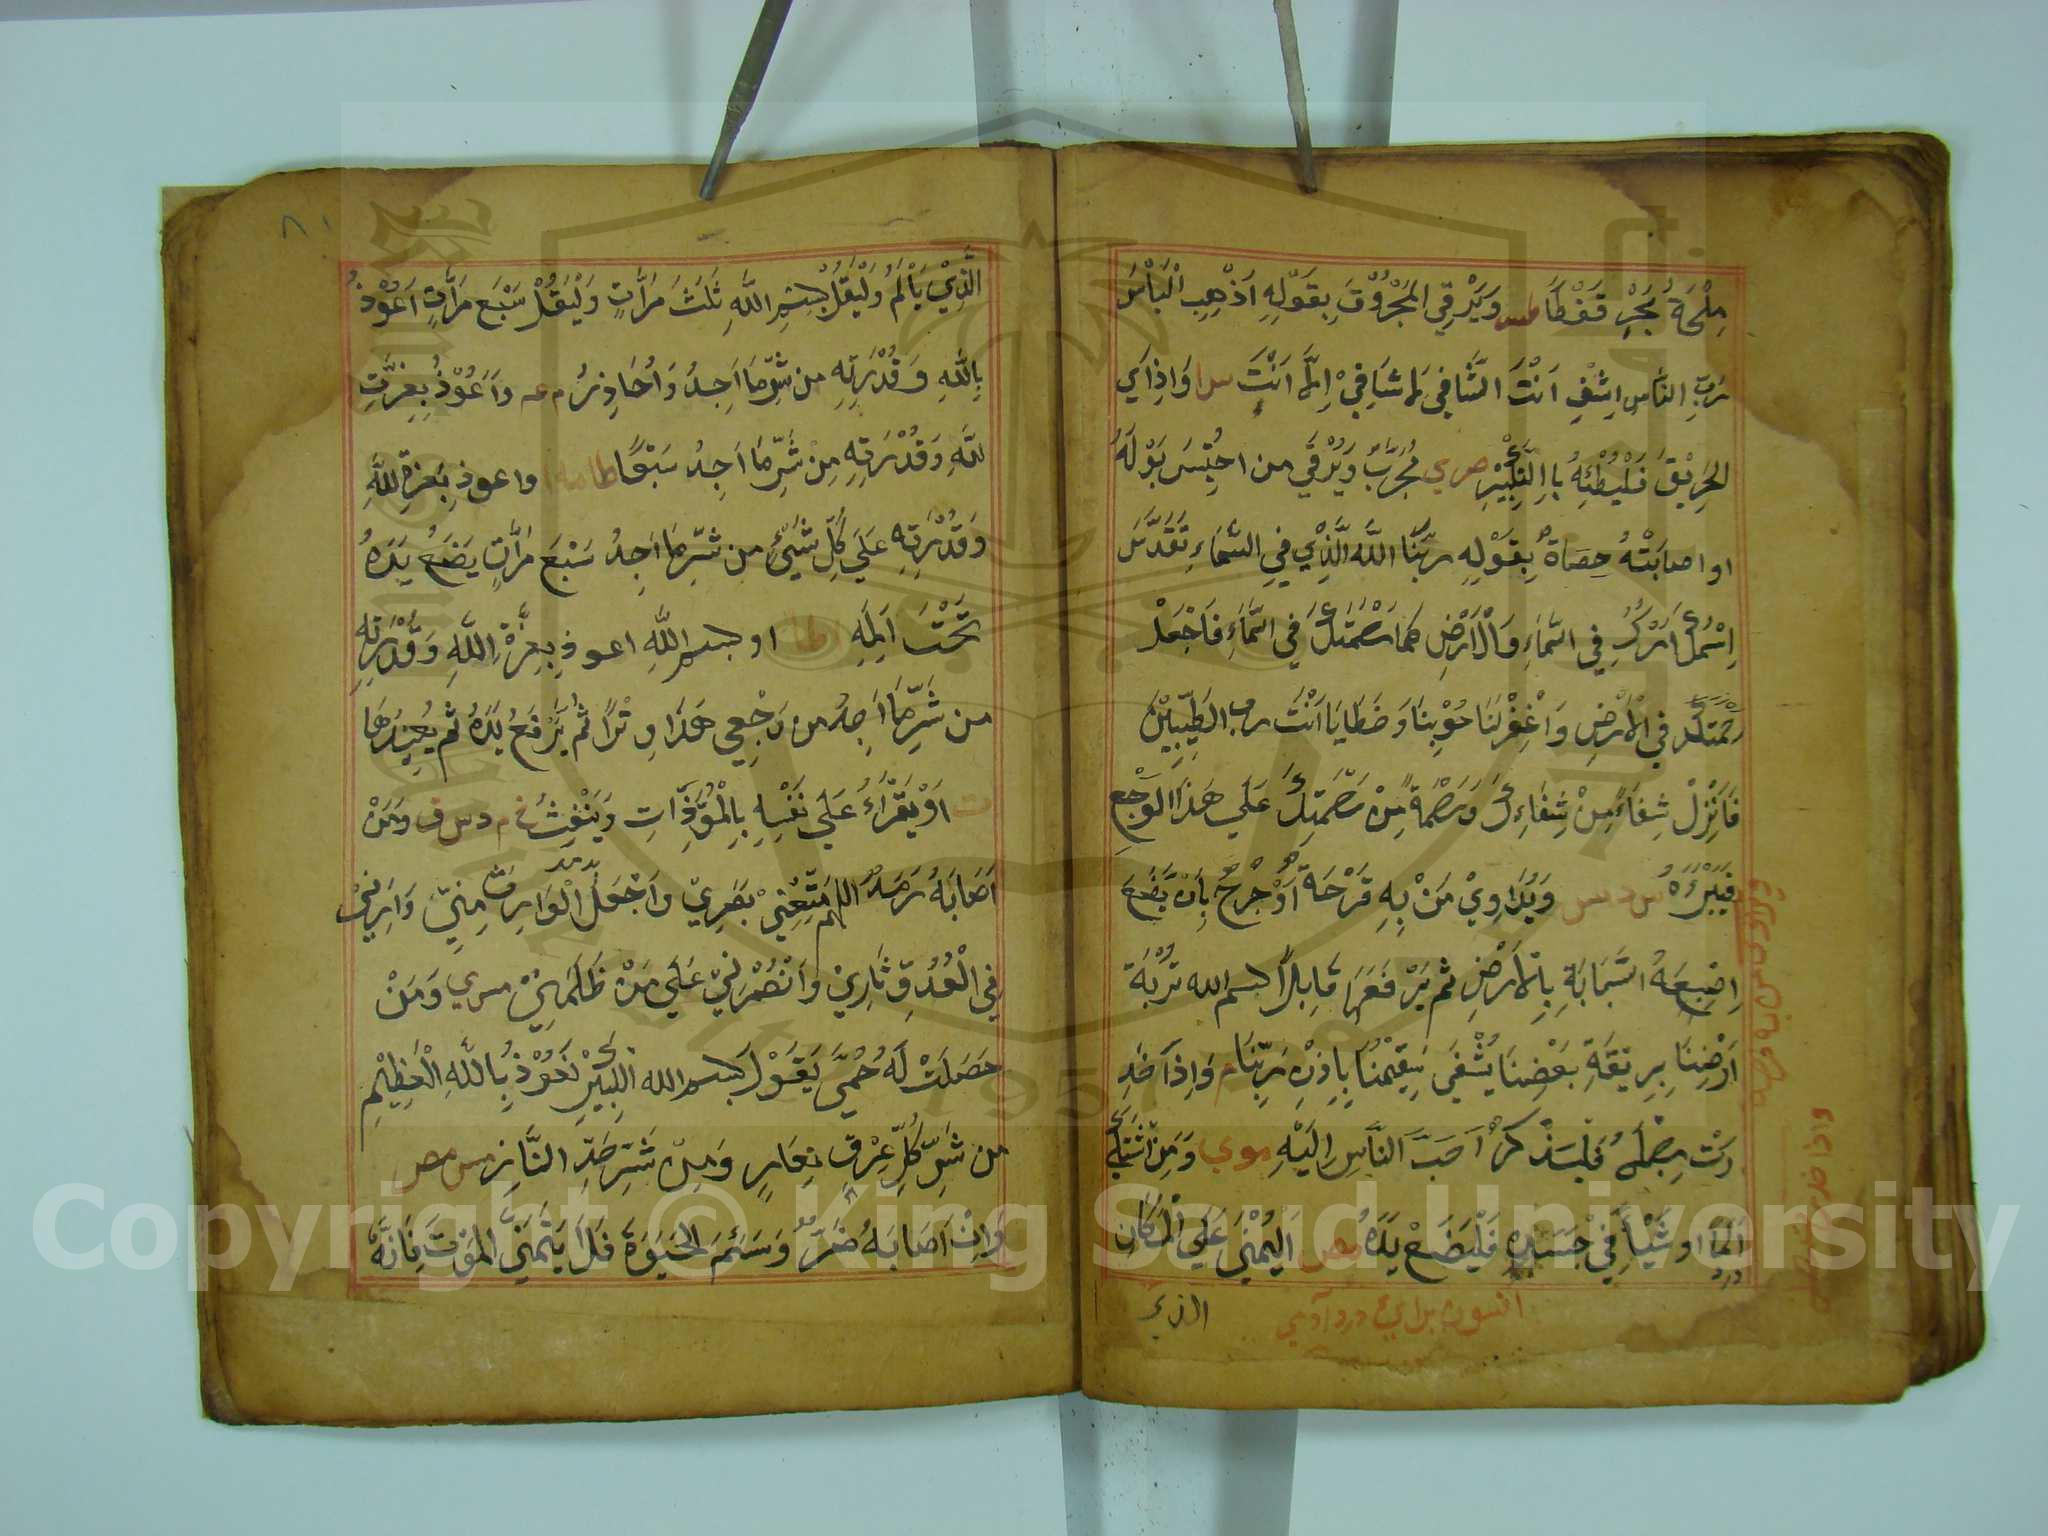 مِلْحَةُ بَحْرٍ قَفْطَا طس وَيَرْقِي الْمَحْرُوْقَ بِقَوْلِهِ اَذْهِبِ الْبَأْسَ
رَبَّ النَّاسِ اِشْفِ اَنْتَ الشَّافِي لَا شَافِيْ اِلَّا اَنْتَ س ا وَاِذَا رَاَي
الْحَرِيْقَ فَلْيُطْفِئْهُ بِالتَّكْبِيْرِ ص ي مُجَرَّبٌ وَيُرْقَي من احْتُبِسَ بَوْلُهُ
او اصابَتْهُ حِصَاةٌ بِقَوْلِهِ رَبَّنَا اللَّهُ الَّذِيْ فِي السَّمَاءِ تَقَدَّسَ
اِسْمُكَ اَمْرُكَ فِي السَّمَاءِ وَالْاَرْضِ كَمَا رَحْمَتُكَ فِي السَّمَاءِ فَاجْعَلْ
رَحْمَتَكَ فِي الْاَرْضِ وَاغْفِرْ لَنَا حُوْبَنَا وَخَطَايَانَا اَنْتَ رب الطَّيِّبِيْنَ
فَاَنْزِلْ شِفَاءً مِنْ شِفَاءِكَ وَرَحْمَةً مِنْ رَحْمَتِكَ عَلَي هَذَا الْوَجْعِ
فَيَبْرَؤُ س د مس وَيُدَاوِيْ مَنْ بِهِ قَرْحَةٌ اَوْ جُرْحٌ بِاَنْ يَضَعَ
اِصْبِعَهُ السَّبَّابَةَ بِالْاَرْضِ ثم يَرْفَعَهَا قَائِلًا بسم الله تُرْبَةُ
اَرْضِنَا بِرِيْقَةِ بَعْضِنَا يُشْفَي سَقِيْمُنَا بِاِذْنِ رَبِّنَا م وَاِذَا خَدِ
رَتْ رِجْلُهُ فَلْيَذْكُرْ اَحَبَّ النَّاسِ اِلَيْهِ مو ي وَمَنِ اشْتَكَي
اَلَمًا او شَيْأً فِيْ جَسَدِهِ فَلْيَضَعْ يَدَهُ الْيُمْنَي عَلَي الْمَكَانِ
الذي
الَّذِيْ يَأْلَمُ وَلْيَقُلْ بسم اللَّهِ ثَلَثَ مَرَّاتٍ وَلْيَقُلْ سَبْعَ مَرَّاتٍ اَعُوْذُ
بِاللَّهِ وَقُدْرَتِهِ من شَرِّ مَا اَجِدُ وَاُحَاذِرُ م عه وَاَعُوْذُ بِعِزَّتِ
للَّهِ وَقُدْرَتِهِ مِنْ شَرِّ مَا اَجِدُ سَبْعًا طا مص واعوذ بِعِزَّةِ اللَّهِ
وَقُدْرَتِهِ عَلَي كُلِّ شَيْئٍ من شَرِّ مَا اَجِدُ سَبْعَ مَرَّاتٍ يَضَعُ يَدَهُ
تَحْتَ اَلَمِهِ ا ط او بسم اللَّهِ اعوذ بِعِزَّةِ اللَّهِ وَقُدْرَتِهِ
من شَرِّ مَا اَجِدُ من وَجْعِي هَذَا وِتْرًا ثُمَّ يَرْفَعُ يَدَهُ ثم يُعِيْدُهَا
ت اَوْ يَقْرَأُ عَلَي نَفْسِهِ بِالْمُعَوِّذَاتِ وَيَنْفِثُ خ م د س ق وَمَنْ
اَصَابَهُ رَمَدٌ اللهم مَتِّعْنِيْ بِبَصَرِيْ وَاجْعَلْهُ الْوَارِثَ مِنِّيْ وَاَرِنِيْ
فِي الْعَدُوِّ ثَارِيْ وَانْصُرْنِيْ عَلَي مَنْ ظَلَمَنِيْ مس ي وَمَنْ
حَصَلَتْ لَهُ حُمَّي يَقُوْلُ بسم الله الْكَبِيْرِ نَعُوْذُ بِاللَّهِ الْعَظِيْمِ
من شَرِّ كُلِّ عِرْقٍ نَعَارٍ وَمِنْ شَرِّ حَرِّ النَّارِ مس مص
وَاِنْ اَصَابَهُ ضَرٌّ وَسَئِمَ الْحَيَوةَ فَلَا يَتَمَنَّي الْمَوْتَ فَاِنَّهُ
٨١
Copyright © King Saud University
1957